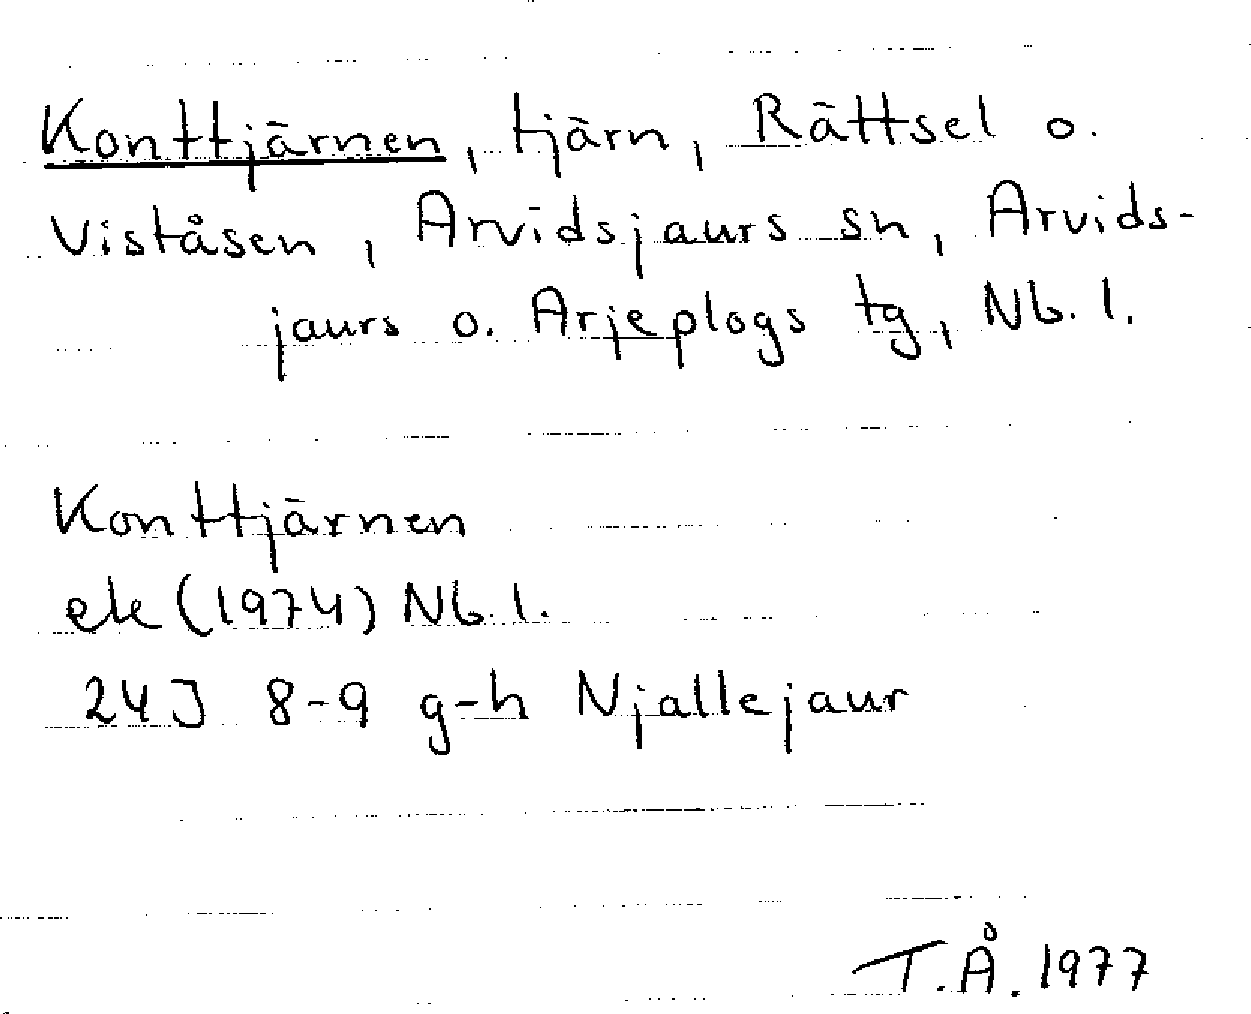 Konttjärnen, tjärn, Rättsel o.
Viståsen, Arvidsjaurs sn, Arvids-
jaurs o. Arjeplogs tg, Nb. l.
Konttjärnen
ek (1974) Nb. l.
24J 8-9 g-h Njallejaur
T.Å. 1977